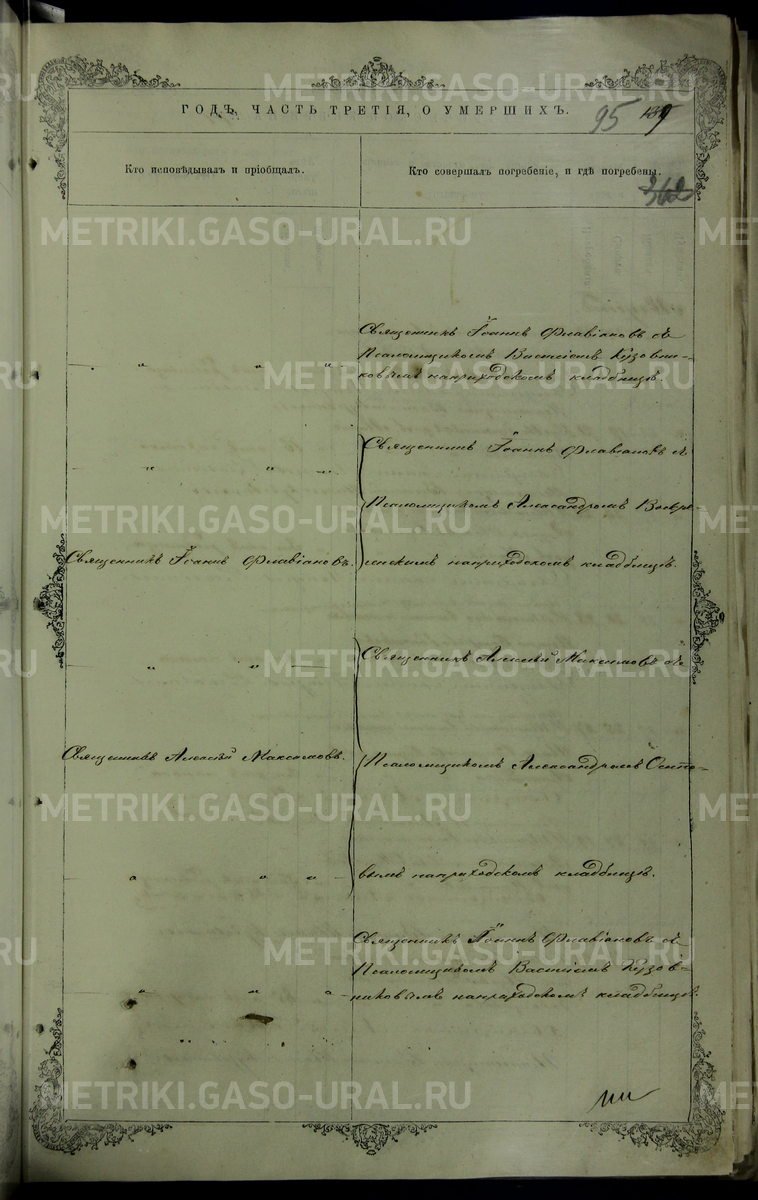 ГОДЪ, ЧАСТЬ ТРЕТІЯ, О УМЕРШИХЪ.
95
Кто исповѣдывалъ и пріобщалъ.
Кто совершалъ погребеніе, и гдѣ погребены.
362
METRIKI.GASO-URAL.RU
Священникъ Іоаннъ Флавіановъ съ
Псаломщикомъ Василіемъ Кузовни-
ковымъ на приходскомъ кладбищѣ.
Священникъ Іоаннъ Флавіановъ съ
Псаломщикомъ Александромъ Воскре-
сенскимъ на приходскомъ кладбищѣ.
Священникъ Іоаннъ Флавіановъ.
Священникъ Алексѣй Максимовъ съ
Священникъ Алексѣй Максимовъ.
Псаломщикомъ Александромъ Осипо-
вымъ на приходскомъ кладбищѣ.
Священникъ Іоаннъ Флавіановъ съ
Псаломщикомъ Василіемъ Кузов-
никовымъ на приходскомъ кладбищѣ.